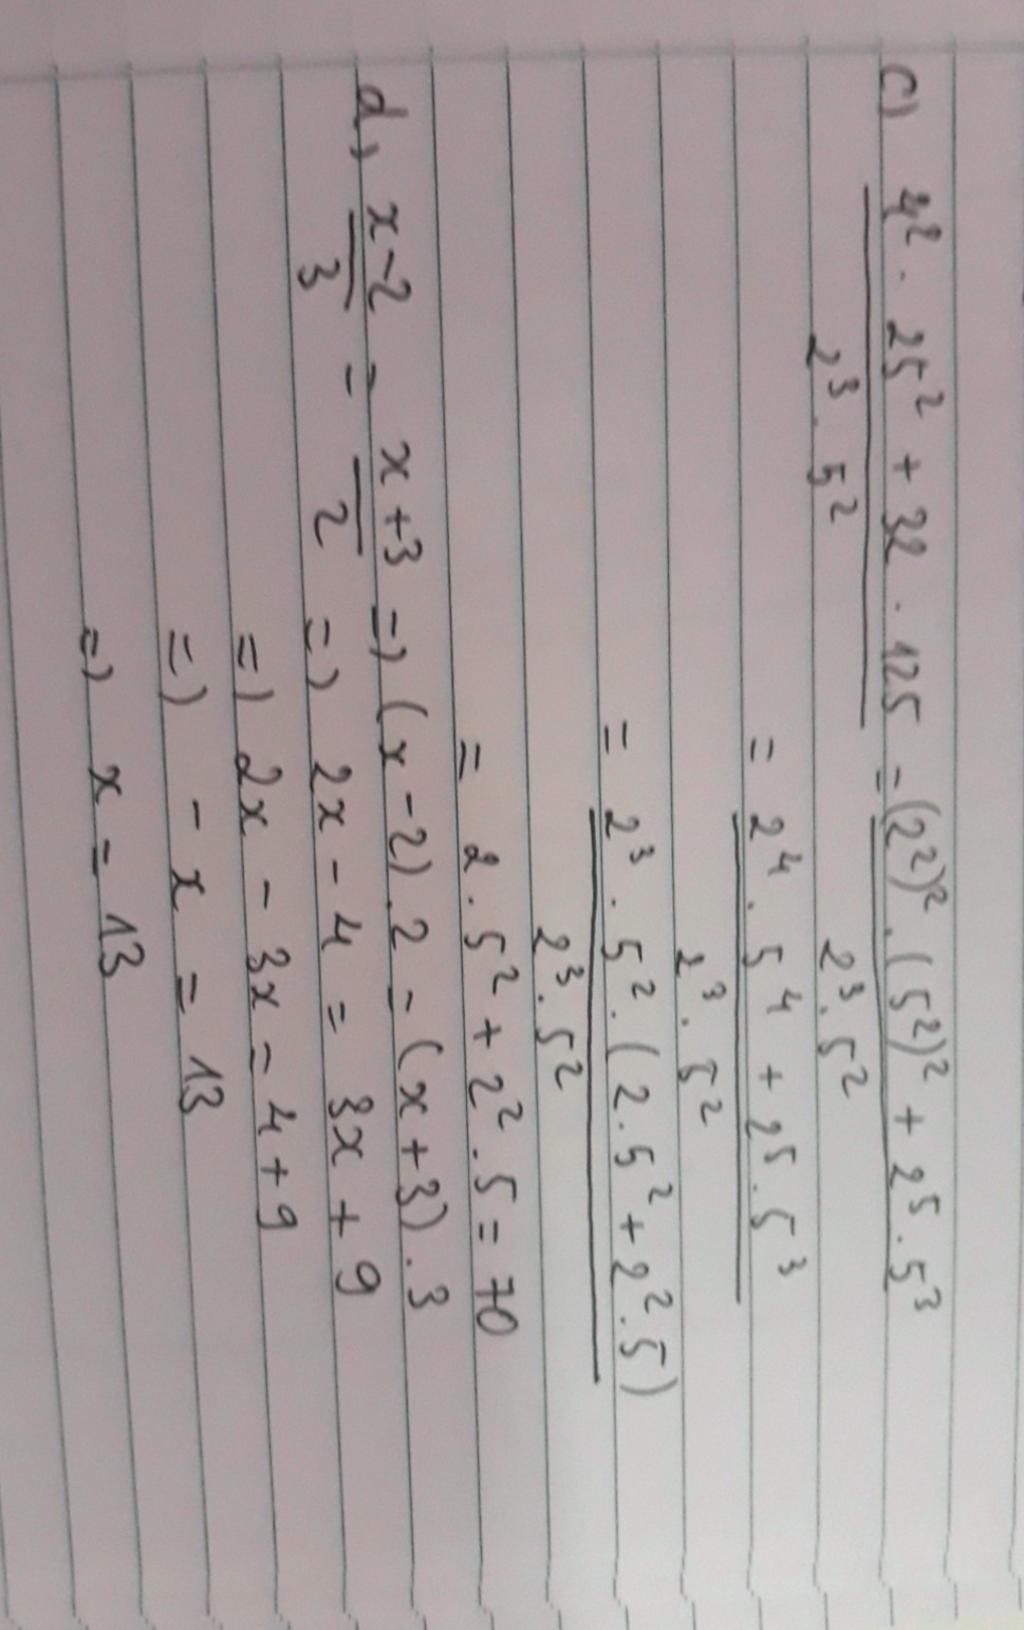 c) 4² . 25² + 32 . 125 / 2³ . 5² = (2²)² . (5²)² + 2⁵ . 5³ / 2³ . 5²
= 2⁴ . 5⁴ + 2⁵ . 5³ / 2³ . 5²
= 2³ . 5² . (2 . 5² + 2² . 5) / 2³ . 5²
= 2 . 5² + 2² . 5 = 70
d, x-2 / 3 = x+3 / 2 =) (x-2) . 2 = (x+3) . 3
=) 2x - 4 = 3x + 9
=) 2x - 3x = 4 + 9
=) - x = 13
=) x = 13